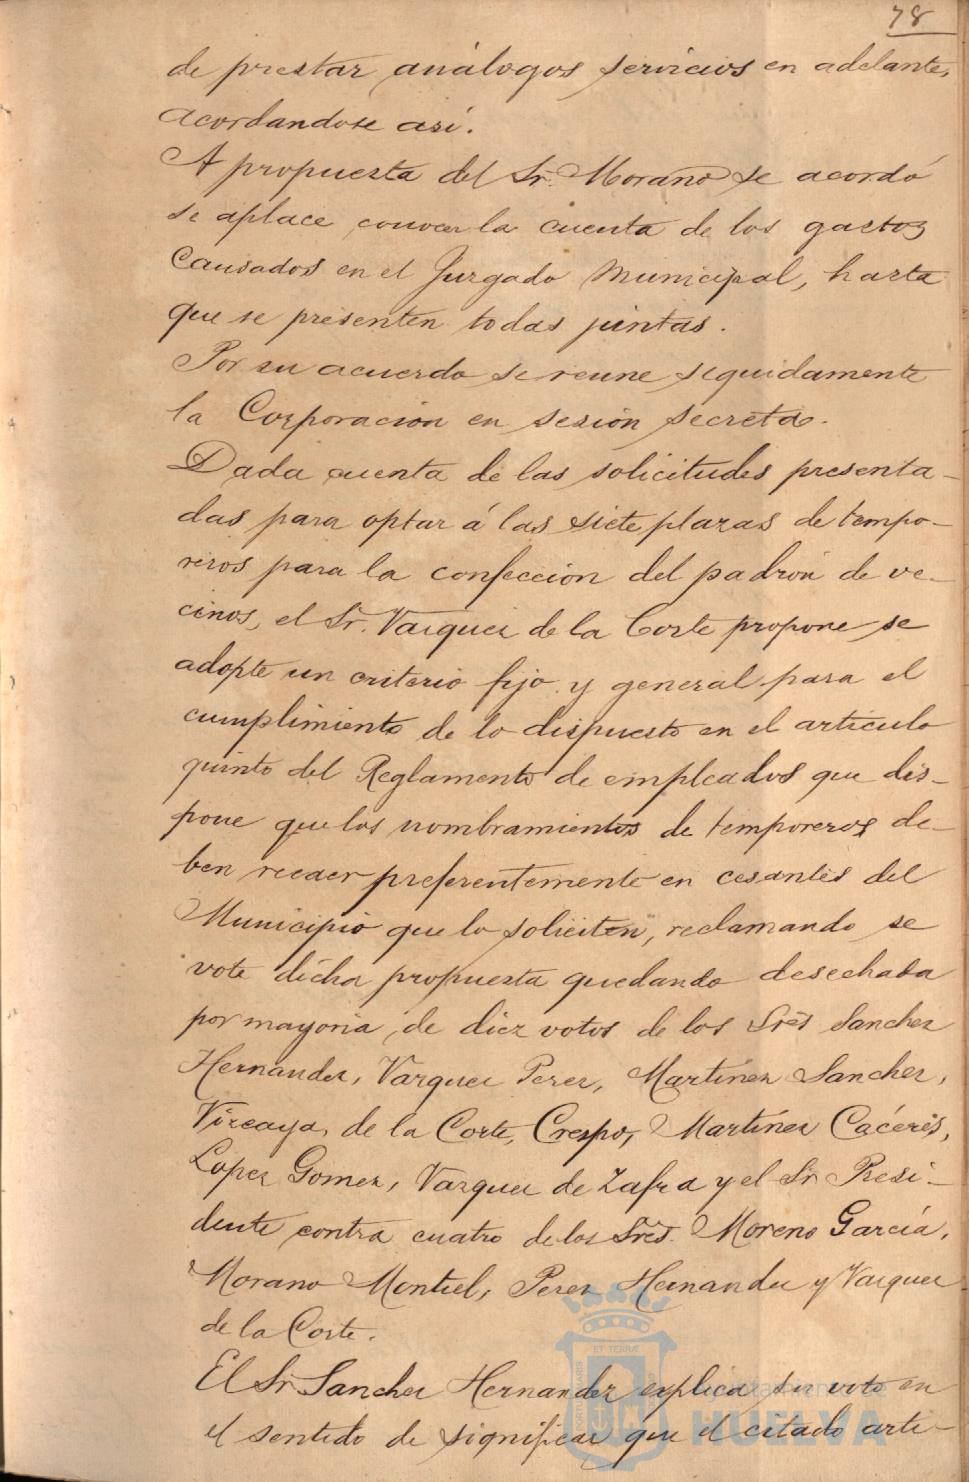 78
de prestar análogos servicios en adelante,
acordandose así.
A propuesta del Sr. Morano se acordó
se aplace conocer la cuenta de los gastos
causados en el Juzgado Municipal, hasta
que se presenten todas juntas.
Por su acuerdo se reune seguidamente
la Corporación en sesión secreta.
Dada cuenta de las solicitudes presenta-
das para optar á las siete plazas de tempo-
reros para la confección del padrón de ve-
cinos, el Sr. Vazquez de la Corte propone se
adopte un criterio fijo y general para el
cumplimiento de lo dispuesto en el articulo
quinto del Reglamento de empleados que dis-
pone que los nombramientos de temporeros de-
ben recaer preferentemente en cesantes del
Municipio que lo soliciten, reclamando se
vote dicha propuesta quedando desechada
por mayoria de diez votos de los Sres Sanchez
Hernandez, Vazquez Perez, Martinez Sanchez,
Vizcaya, de la Corte, Crespo, Martínez Cáceres,
Lopez Gomez, Vazquez de Zafra y el Sr Presi-
dente contra cuatro de los Sres. Moreno García,
Morano Montiel, Perez Hernandez y Vazquez
de la Corte.
El Sr Sanchez Hernandez explica su voto en
el sentido de significar que el citado arti-
ET TERRÆ
Ayuntamiento de
HUELVA